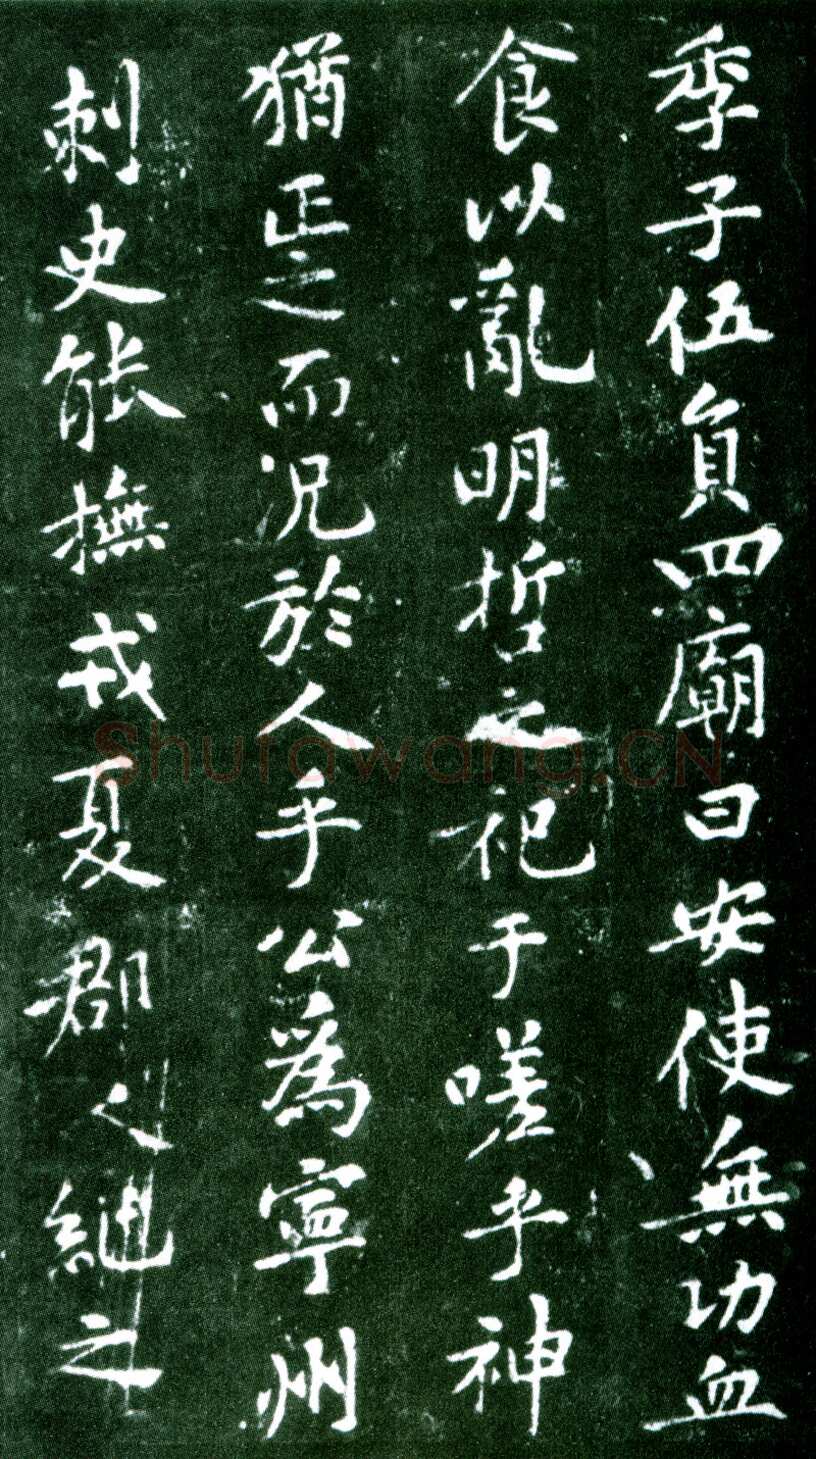 季子伍員四廟曰安使無功血
食以亂明哲之祀于嗟乎神
猶正之而况於人乎公爲寧州
刺史能撫戎夏郡人之
Shufawang.CN